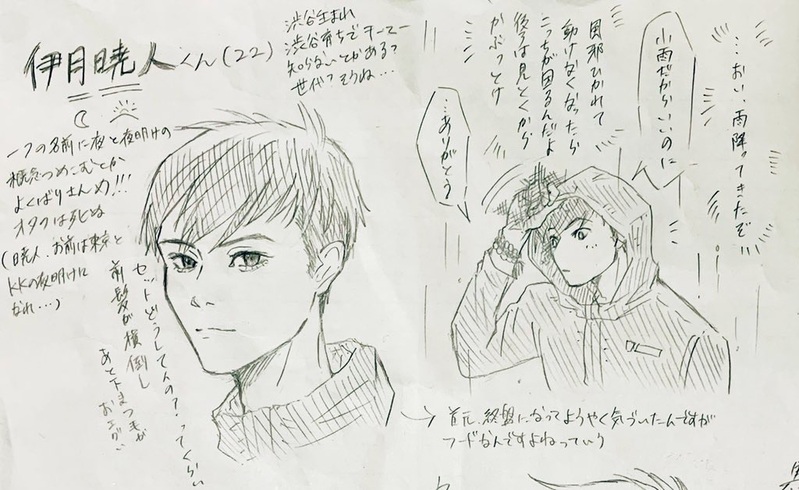 伊月暁人くん(22)
渋谷生まれ
渋谷育ちで
知らないとかある?
世代?そうね…
一つの名前に夜と夜明けの
概念つめこむとか
よくばりさんめ!!!
オタクは死ぬ
(暁人、お前は東京と
KKの夜明けに
なれ…)
セットどうしてんの?ってくらい
前髪が横倒し
あと下まつ毛が
…おい、雨降ってきたぞ
小雨だからいいのに
風邪ひかれて
動けなくなったら
こっちが困るんだよ
後ろは見とくから
かぶっとけ
…ありがとう
→首元、終盤になってようやく気づいたんですが
フードなんですよねっていう